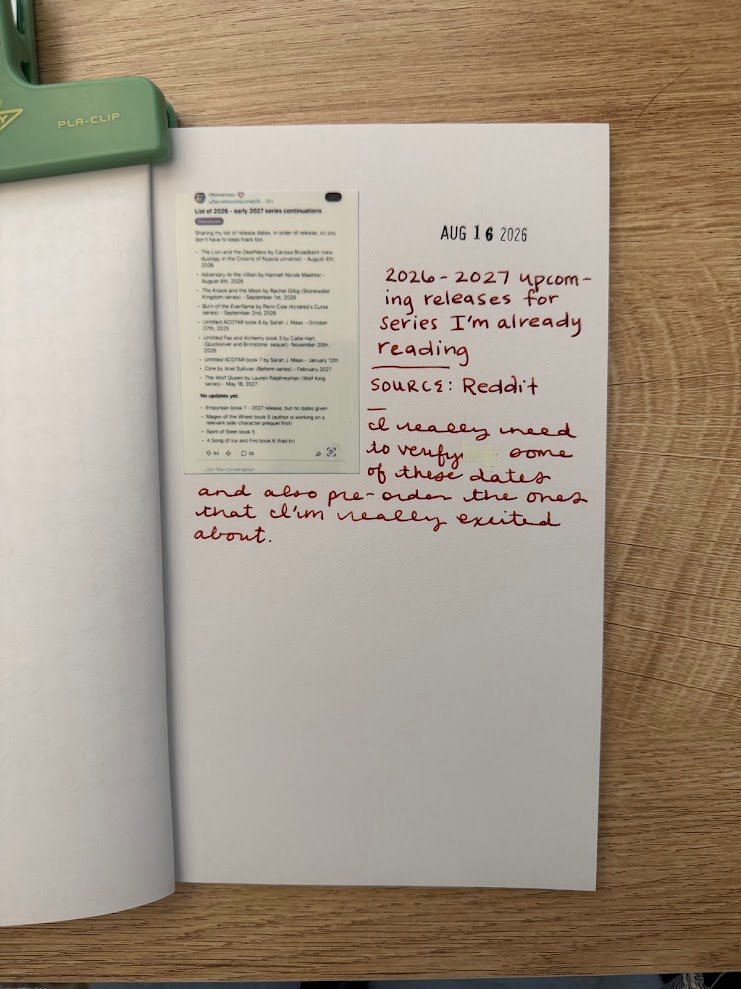 PLA-CLIP
r/Romantasy
List of 2026 - early 2027 series continuations
Discussion
Sharing my list of release dates, in order of release, so you
don't have to keep track too.
• The Lion and the Deathless by Carissa Broadbent (new
duology in the Crowns of Nyaxia universe) - August 4th,
2026
• Adversary to the Villain by Hannah Nicole Maehrer -
August 4th, 2026
• The Knave and the Moon by Rachel Gillig (Stonewater
Kingdom series) - September 1st, 2026
• Burn of the Everflame by Penn Cole (Kindred's Curse
series) - September 2nd, 2026
• Untitled ACOTAR book 6 by Sarah J. Maas - October
27th, 2025
• Untitled Fae and Alchemy book 3 by Callie Hart
(Quicksilver and Brimstone sequel) - November 20th,
2026
• Untitled ACOTAR book 7 by Sarah J. Maas - January 12th
• Core by Ariel Sullivan (Reform series) - February 2027
• The Wolf Queen by Lauren Palphreyman (Wolf King
series) - May 18, 2027
No updates yet:
• Empyrean book 7 - 2027 release, but no dates given
• Mages of the Wheel book 5 (author is working on a
relevant side-character prequel first)
• Saint of Steel book 5
• A Song of Ice and Fire book 6 (had to)
52
Join the conversation
AUG 16 2026
2026-2027 upcom-
ing releases for
series I'm already
reading
SOURCE: Reddit
I really need
to verify some
of these dates
and also pre-order the ones
that I'm really excited
about.